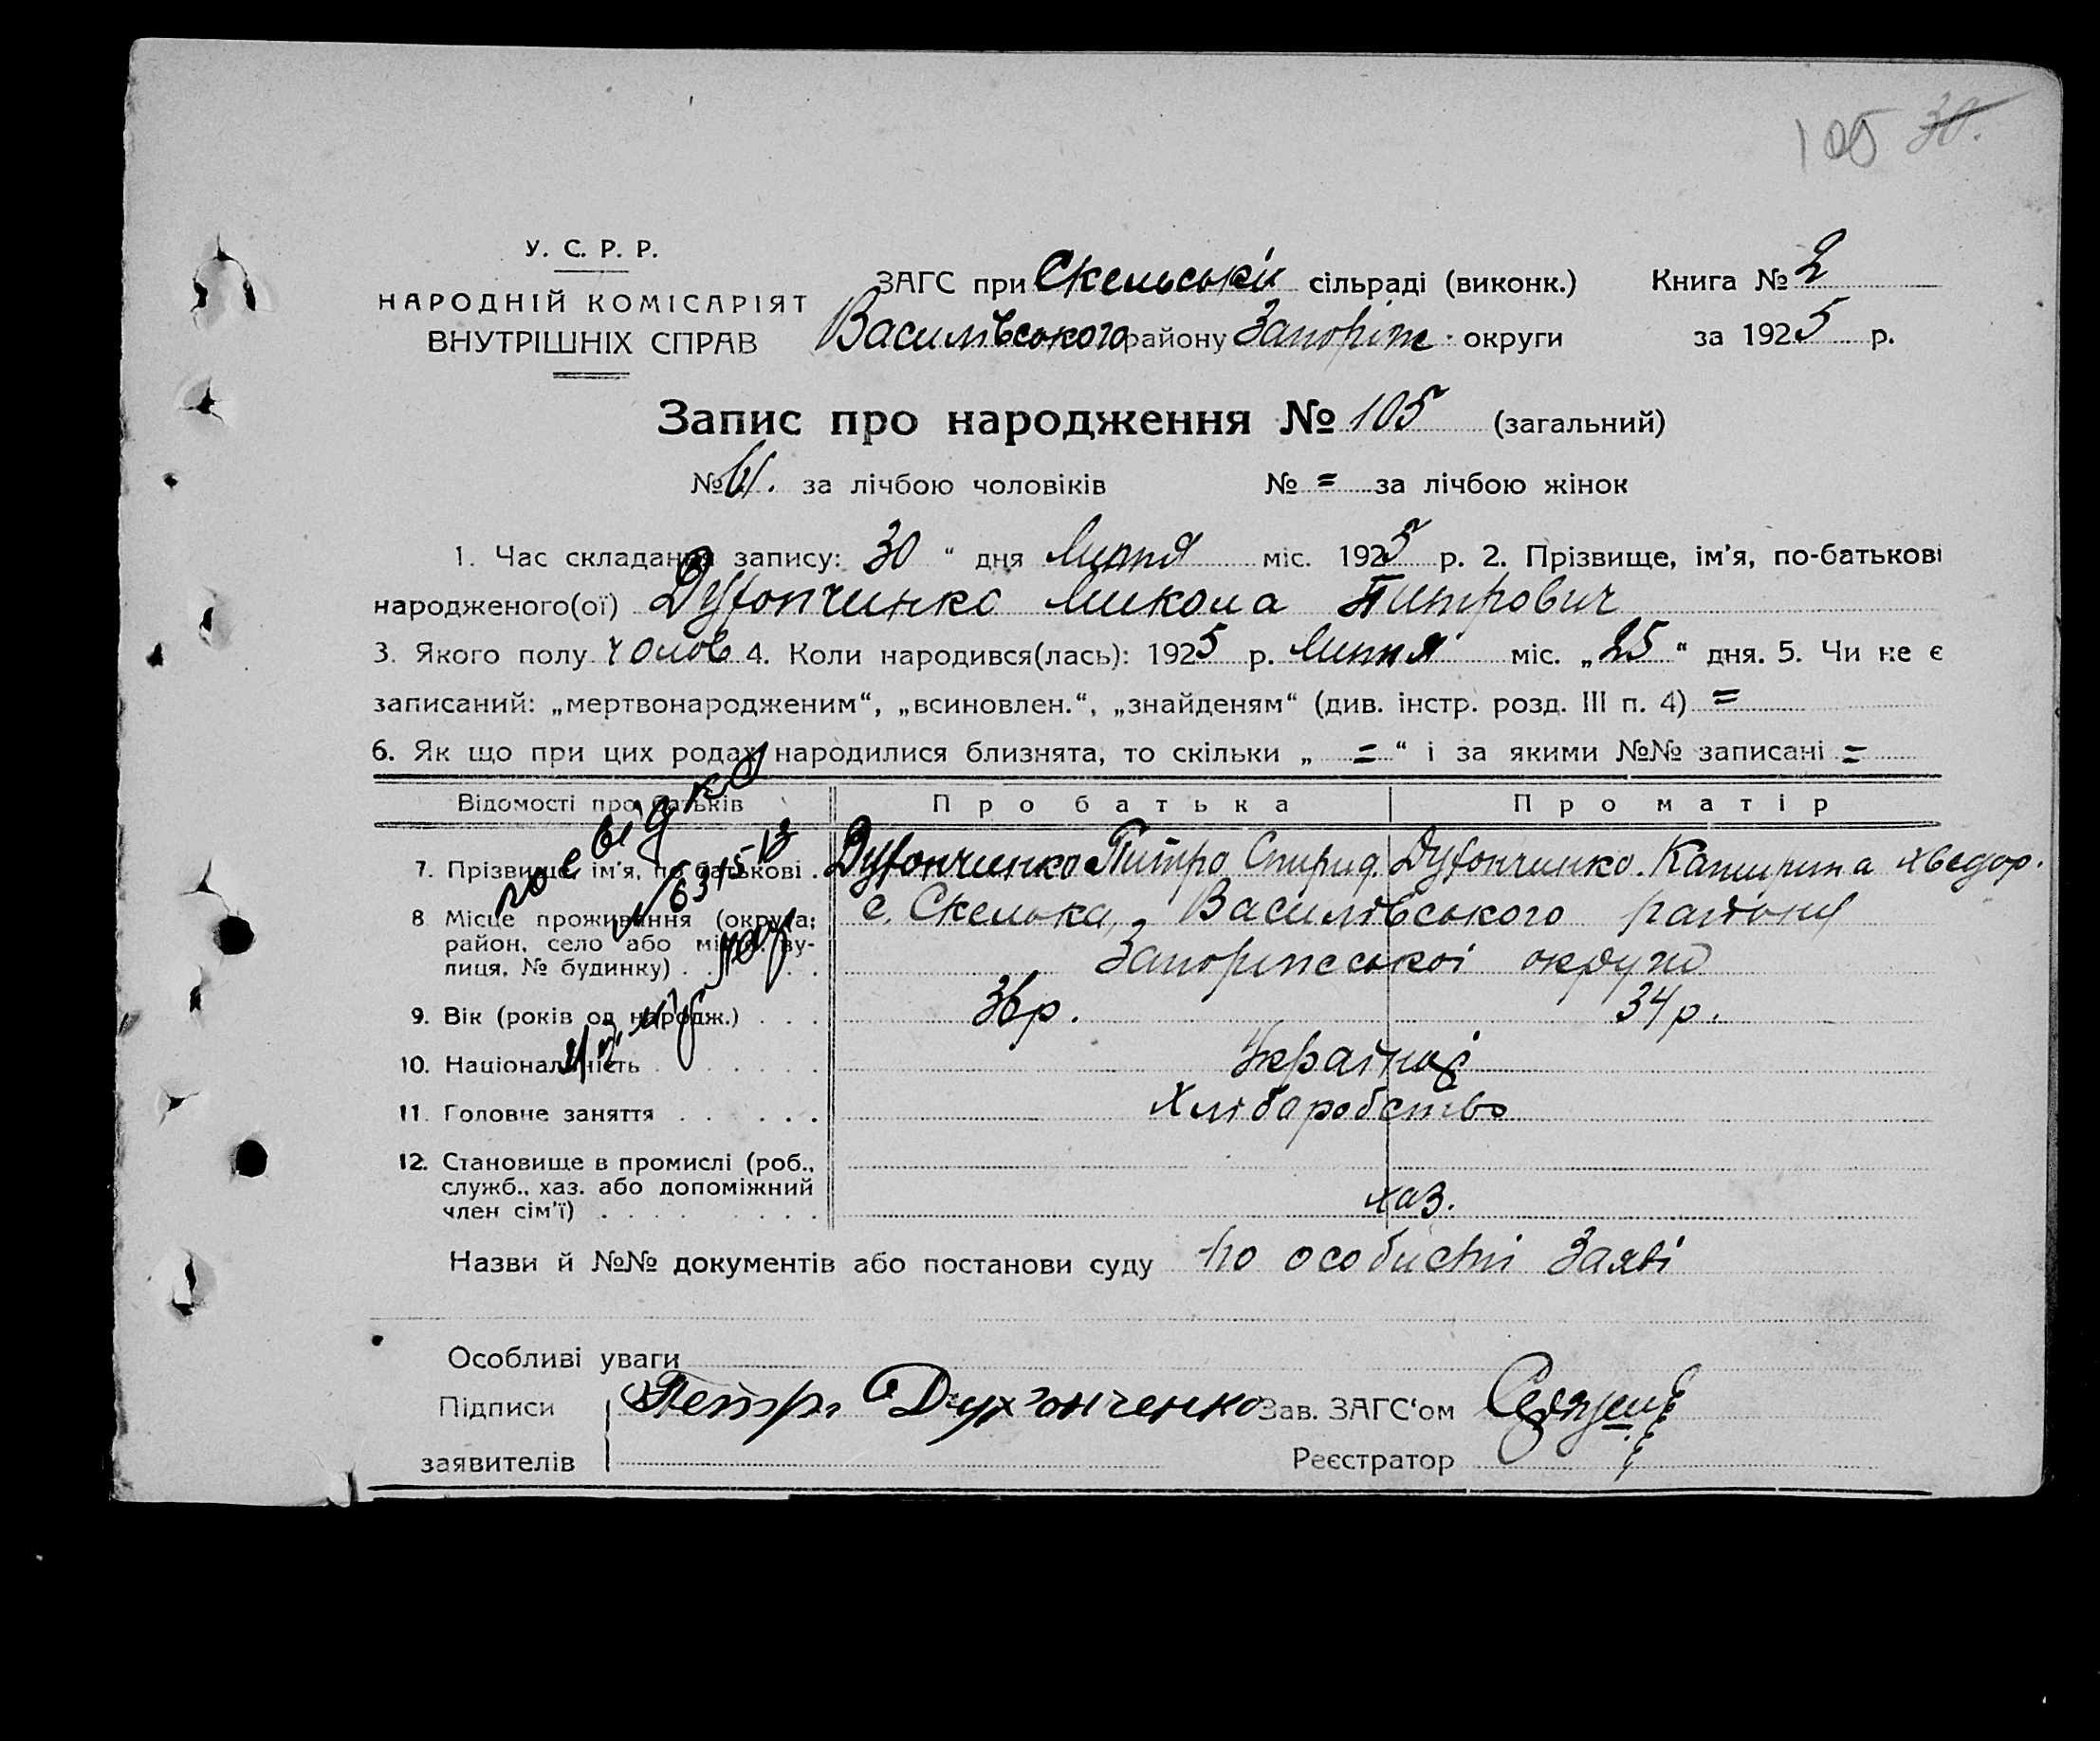 105 30.
У. С. Р. Р.
НАРОДНІЙ КОМІСАРІЯТ
ВНУТРІШНІХ СПРАВ
ЗАГС при Скельській сільраді (виконк.) Книга № 2
Василівського району Запоріж. округи за 1925 р.
Запис про народження № 105 (загальний)
№ 61. за лічбою чоловіків № = за лічбою жінок
1. Час складання запису: 30 " дня липня міс. 1925 р. 2. Прізвище, ім'я, по-батькові
народженого(ої) Микола Питрович
3. Якого полу чолов 4. Коли народився(лась): 1925 р. липня міс. „25" дня. 5. Чи не є
записаний: „мертвонародженим“, „всиновлен.“, „знайденям“ (див. інстр. розд. III п. 4) =
6. Як що при цих родах народилися близнята, то скільки „ = “ і за якими №№ записані =
Відомості про батьків Про батька Про матір
7. Прізвище, ім'я, по батькові . Питро Спирид. Катирина Хведор.
8 Місце проживання (округа; с. Скелька, Василівського району
район, село або місто, ву-
лиця, № будинку) . . . . . Запоріжської округи
9. Вік (років од народж.) . . . 36р. 34р.
10. Національність . . . . . .
11. Головне заняття . . . . . . Хлібаробство
12. Становище в промислі (роб.,
служб., хаз. або допоміжний
член сім'ї) . . . . . . . . хаз.
Назви й №№ документів або постанови суду по особисті заяві
Особливі уваги
Підписи Зав. ЗАГС'ом
заявителів Реєстратор